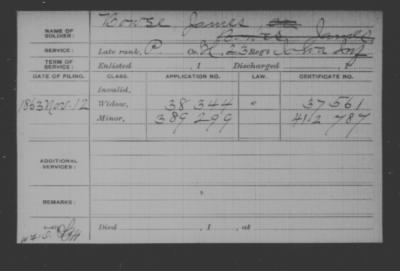 NAME OF SOLDIER: Bowse James
James
SERVICE: Late rank, P. Co. H, 23 Reg't Inf
TERM OF SERVICE: Enlisted , 1 Discharged , 1
DATE OF FILING. CLASS. APPLICATION NO. LAW. CERTIFICATE NO.
Invalid,
1863 Nov. 12 Widow, 38 344 37 561
Minor, 389 299 412 787
ADDITIONAL SERVICES:
REMARKS:
Died , 1 , at